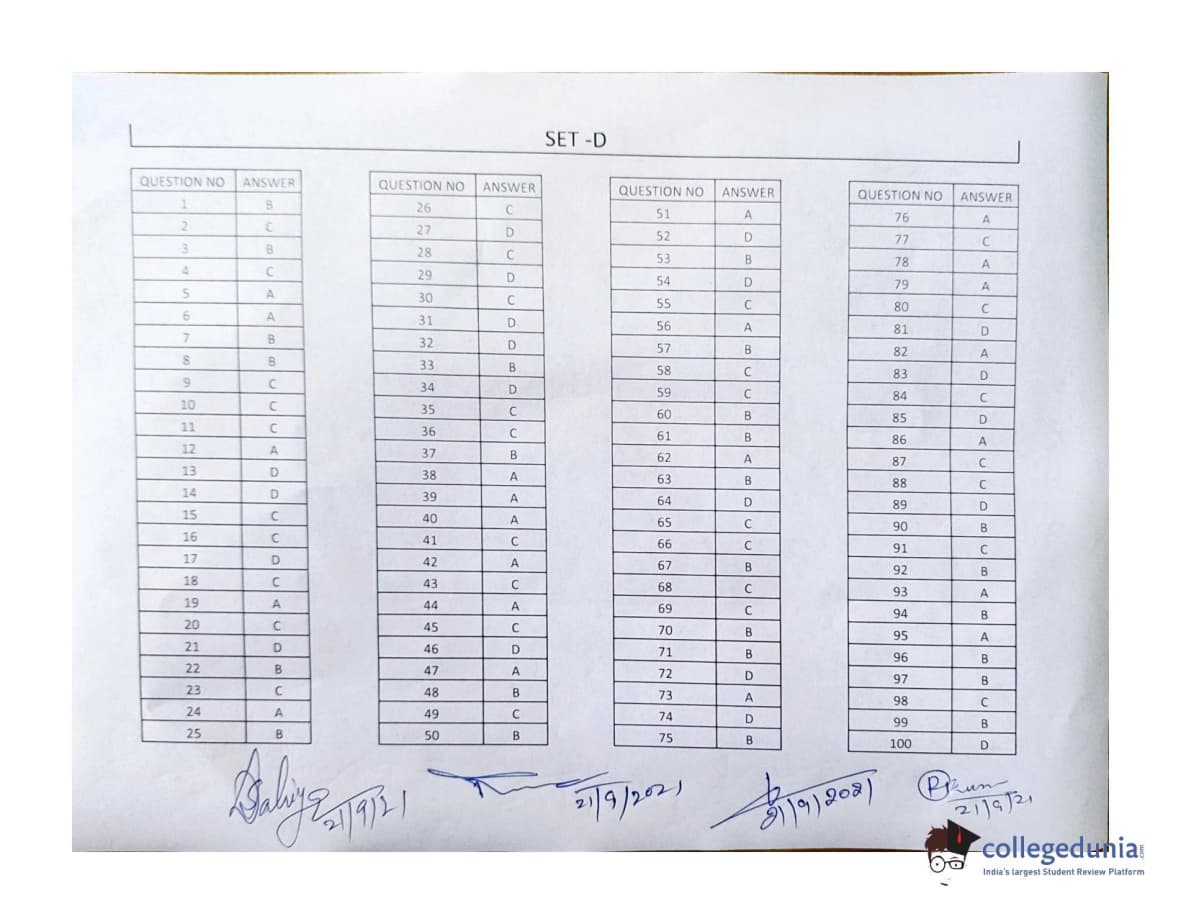 SET -D
QUESTION NO ANSWER
1 B
2 C
3 B
4 C
5 A
6 A
7 B
8 B
9 C
10 C
11 C
12 A
13 D
14 D
15 C
16 C
17 D
18 C
19 A
20 C
21 D
22 B
23 C
24 A
25 B
QUESTION NO ANSWER
26 C
27 D
28 C
29 D
30 C
31 D
32 D
33 B
34 D
35 C
36 C
37 B
38 A
39 A
40 A
41 C
42 A
43 C
44 A
45 C
46 D
47 A
48 B
49 C
50 B
QUESTION NO ANSWER
51 A
52 D
53 B
54 D
55 C
56 A
57 B
58 C
59 C
60 B
61 B
62 A
63 B
64 D
65 C
66 C
67 B
68 C
69 C
70 B
71 B
72 D
73 A
74 D
75 B
QUESTION NO ANSWER
76 A
77 C
78 A
79 A
80 C
81 D
82 A
83 D
84 C
85 D
86 A
87 C
88 C
89 D
90 B
91 C
92 B
93 A
94 B
95 A
96 B
97 B
98 C
99 B
100 D
21/9/21
21/9/2021
21/9/2021
21/9/21
collegedunia.com
India's largest Student Review Platform